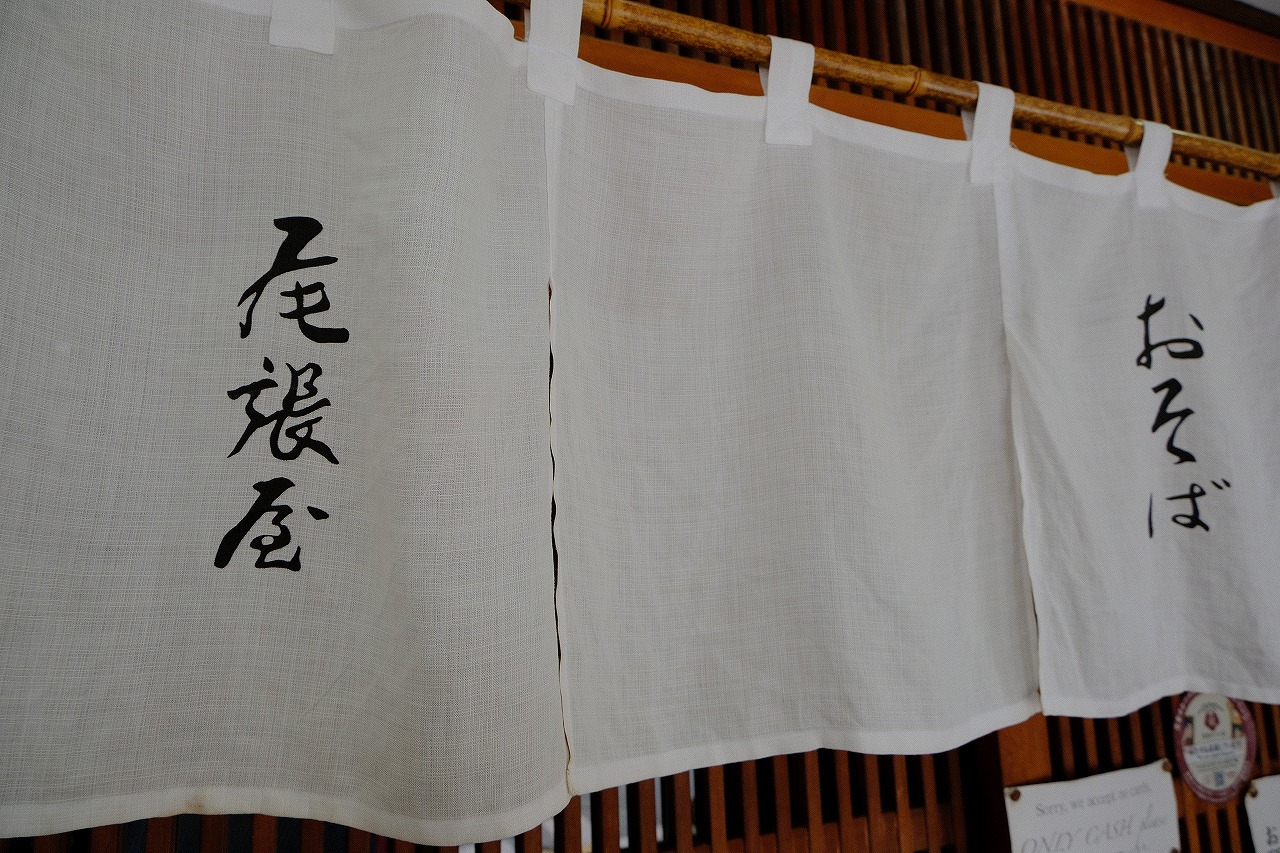 尾張屋
おそば
Sorry, we accept no cards.
ONLY CASH please
お